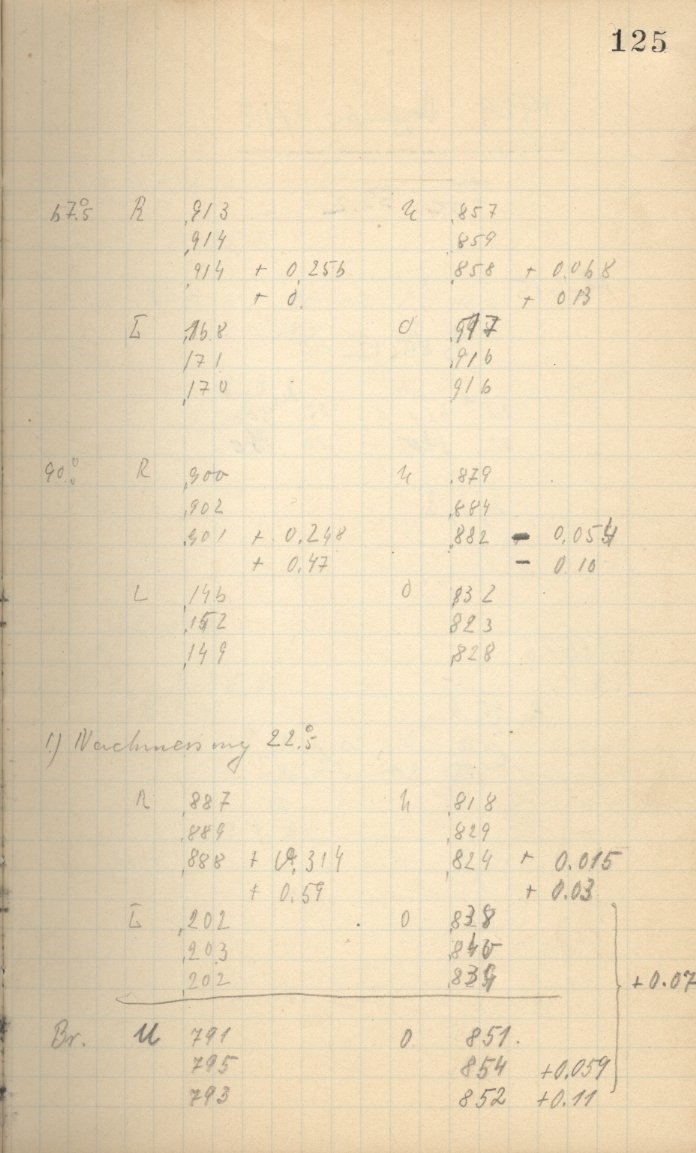 125
67°.5 R ,913 U ,857
,914 ,859
,914 + 0,256 ,858 + 0.068
+ 0. + 0.13
L ,168 O
,171 ,916
,170 916
90°. R ,900 U ,879
,902 ,884
,901 + 0.248 ,882 - 0.054
+ 0.47 - 0.10
L ,146 O ,832
,152 823
,149 ,828
1) Nachmessung 22°.5
R ,887 U 818
,889 ,829
,888 + 0.314 ,824 + 0.015
+ 0.59 + 0.03
L ,202 O 838
,203 840
,202 839 +0.07
Br. U 791 O 851.
795 854 +0.059
793 852 +0.11